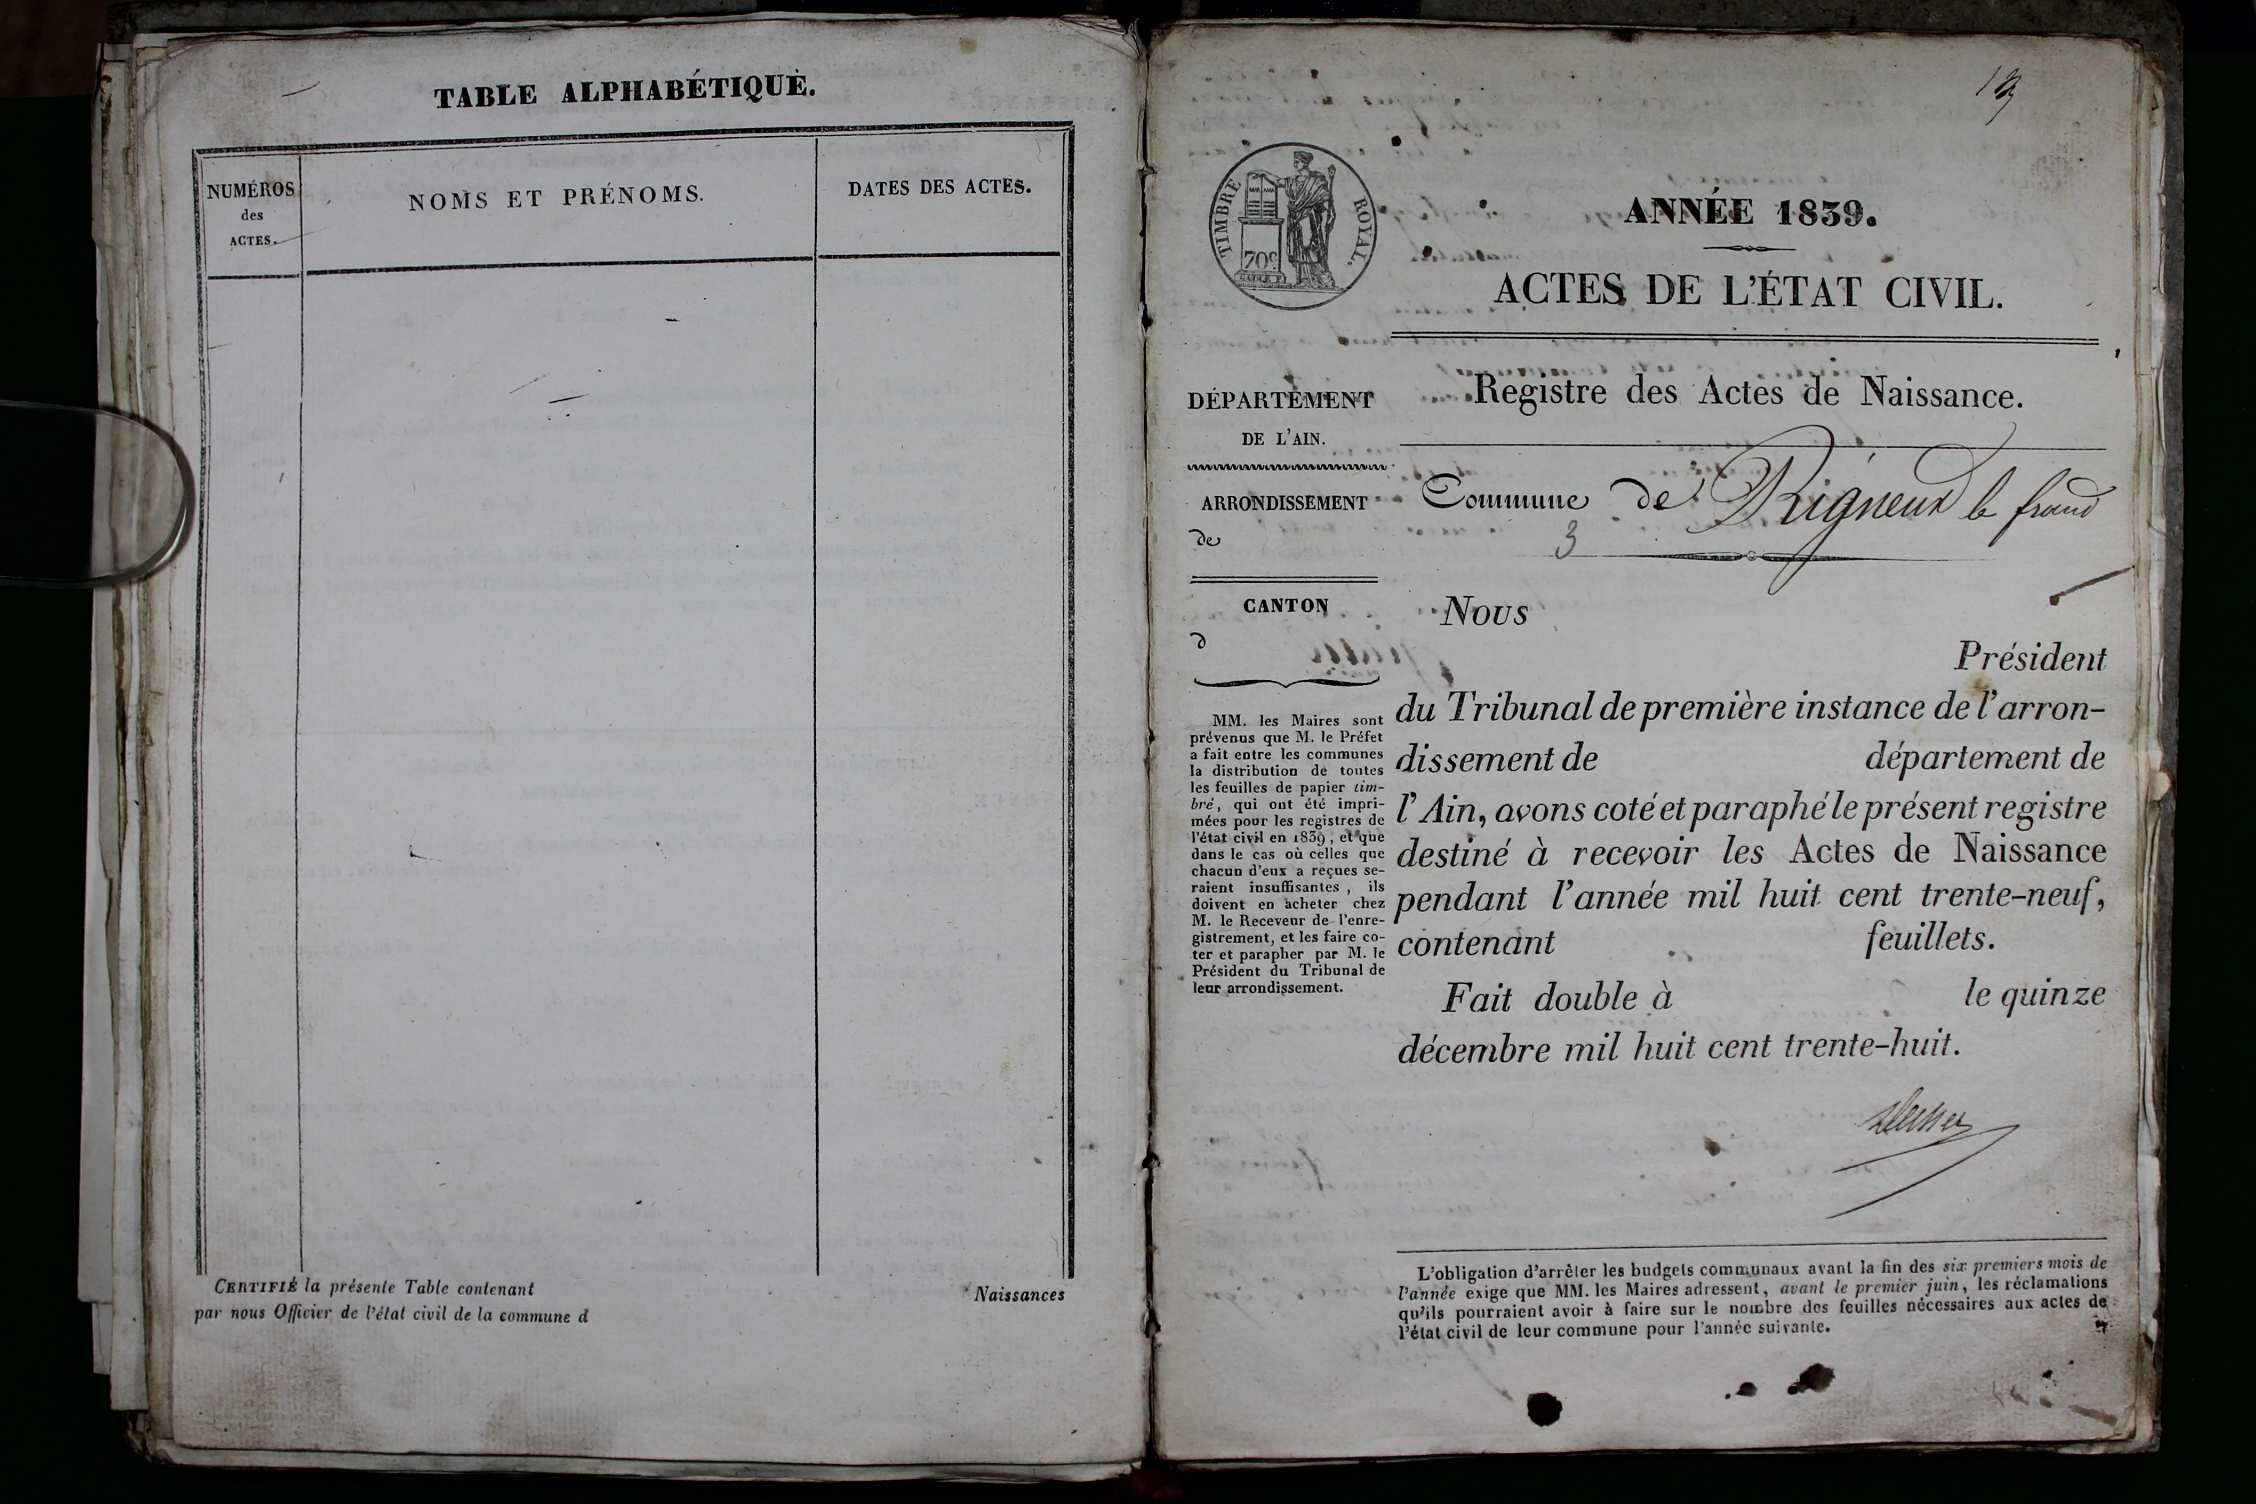 TABLE ALPHABÉTIQUE.
NUMÉROS
des
ACTES.
NOMS ET PRÉNOMS.
DATES DES ACTES.
CERTIFIÉ la présente Table contenant Naissances
par nous Officier de l'état civil de la commune d
TIMBRE ROYAL.
70c
ANNÉE 1839.
ACTES DE L'ÉTAT CIVIL.
DÉPARTEMENT
DE L'AIN.
ARRONDISSEMENT
de
CANTON
d
MM. les Maires sont
prévenus que M. le Préfet
a fait entre les communes
la distribution de toutes
les feuilles de papier tim-
bré, qui ont été impri-
mées pour les registres de
l'état civil en 1839, et que
dans le cas où celles que
chacun d'eux a reçues se-
raient insuffisantes, ils
doivent en acheter chez
M. le Receveur de l'enre-
gistrement, et les faire co-
ter et parapher par M. le
Président du Tribunal de
leur arrondissement.
Registre des Actes de Naissance.
Commune de Rigneux le franc
3
Nous
Président
du Tribunal de première instance de l'arron-
dissement de département de
l'Ain, avons coté et paraphé le présent registre
destiné à recevoir les Actes de Naissance
pendant l'année mil huit cent trente-neuf,
contenant feuillets.
Fait double à le quinze
décembre mil huit cent trente-huit.
L'obligation d'arrêter les budgets communaux avant la fin des six premiers mois de
l'année exige que MM. les Maires adressent, avant le premier juin, les réclamations
qu'ils pourraient avoir à faire sur le nombre des feuilles nécessaires aux actes de
l'état civil de leur commune pour l'année suivante.